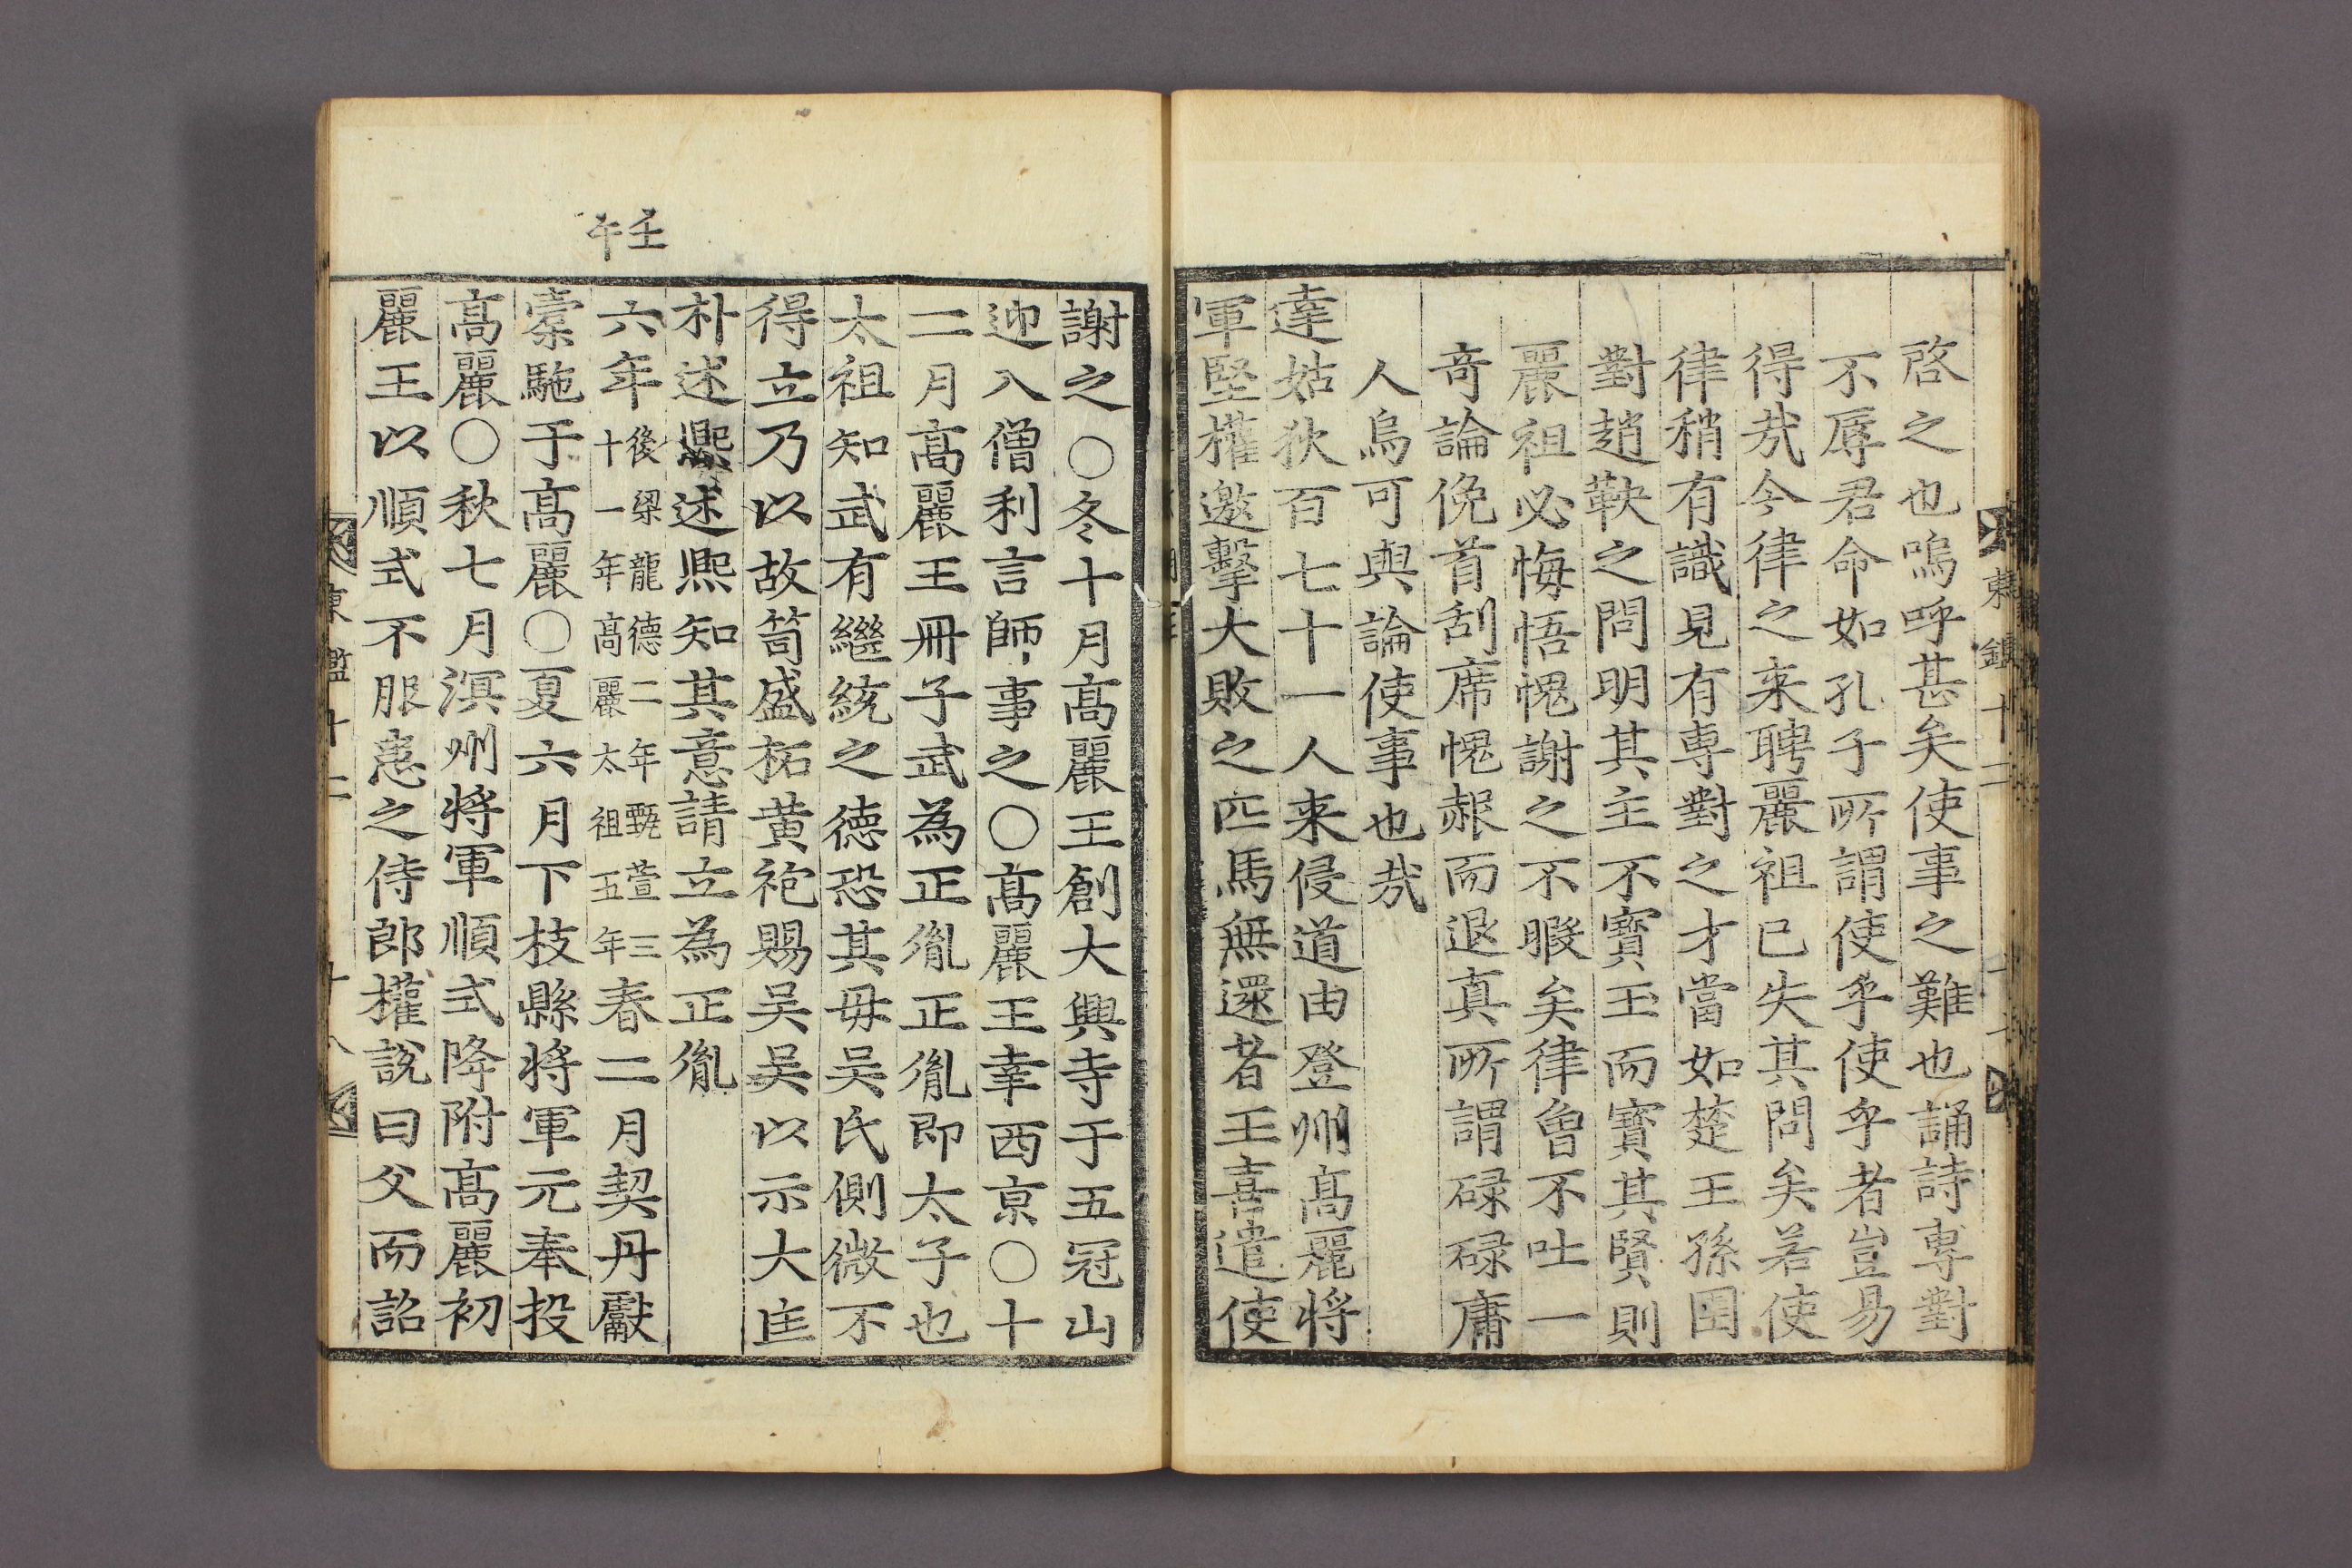 啓之也嗚呼甚矣使事之難也誦詩專對
不辱君命如孔子所謂使乎使乎者豈易
得㢤今律之来聘麗祖已失其問矣若使
律稍有識見有専對之才當如楚王孫圉
對趙鞅之問明其主不寶玉而寶其賢則
麗祖必悔悟愧謝之不暇矣律曾不吐一
竒論俛首刮席愧赧而退真所謂碌碌庸
人烏可與論使事也㢤
達姑狄百七十一人来侵道由登州髙麗将
軍堅權邀擊大敗之匹馬無還者王喜遣使
謝之○冬十月髙麗王創大興寺于五冠山
迎入僧利言師事之○髙麗王幸西京○十
二月髙麗王冊子武為正胤正胤即太子也
太祖知武有繼統之德恐其毋吴氏側微不
得立乃以故笥盛柘黄袍賜吴吴以示大匡
朴述熙述熙知其意請立為正胤
壬午
六年後梁龍德二年甄萱三十一年髙麗太祖五年春二月契丹獻
橐駞于髙麗○夏六月下枝縣将軍元奉投
髙麗○秋七月溟州将軍順式降附髙麗初
麗王以順式不服患之侍郎權說曰父而詔